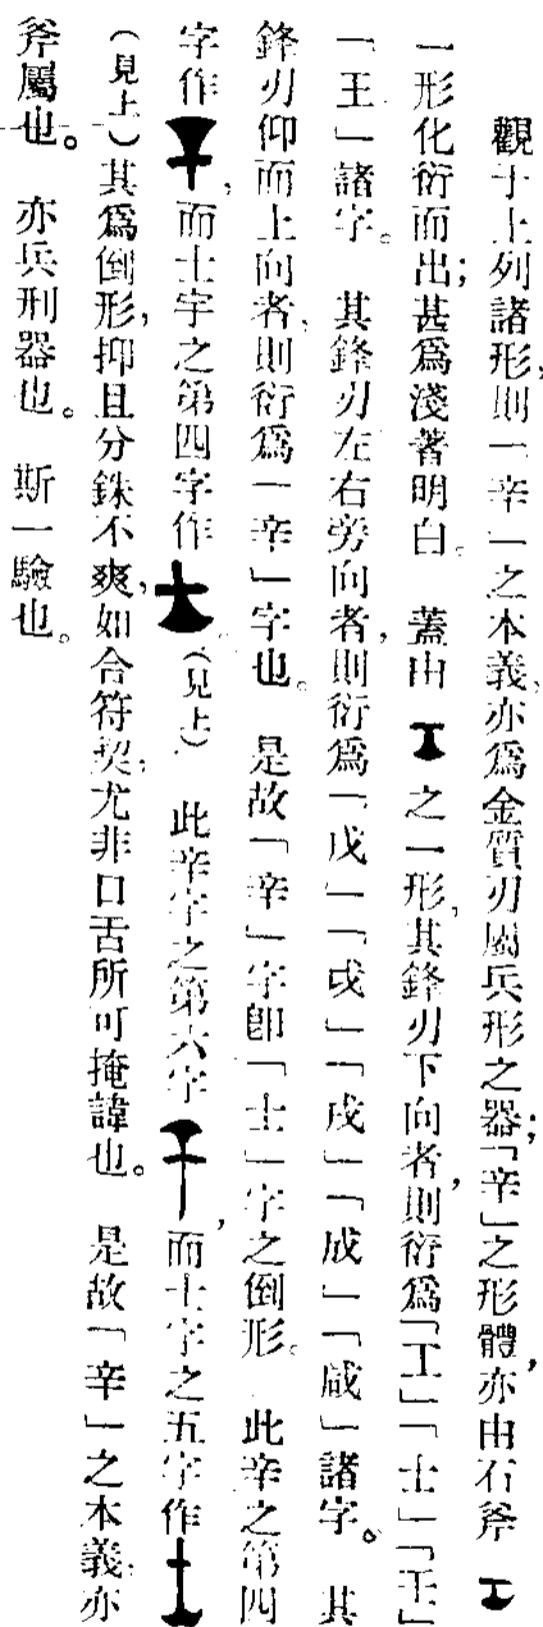 觀于上列諸形，則「辛」之本義，亦爲金質刃屬兵形之器；「辛」之形體，亦由石斧
一形化衍而出；甚爲淺著明白。蓋由 之一形，其鋒刃下向者，則衍爲「工」「士」「王」
「王」諸字。其鋒刃左右旁向者，則衍爲「戊」「戉」「戌」「成」「咸」諸字。其
鋒刃仰而上向者，則衍爲「辛」字也。是故「辛」字卽「士」字之倒形。此辛之第四
字作 ，而士字之第四字作 。（見上）此辛字之第六字 ，而士字之五字作
（見上）其爲倒形，抑且分銖不爽，如合符契，尤非口舌所可掩諱也。是故「辛」之本義，亦
斧屬也。亦兵刑器也。斯一驗也。